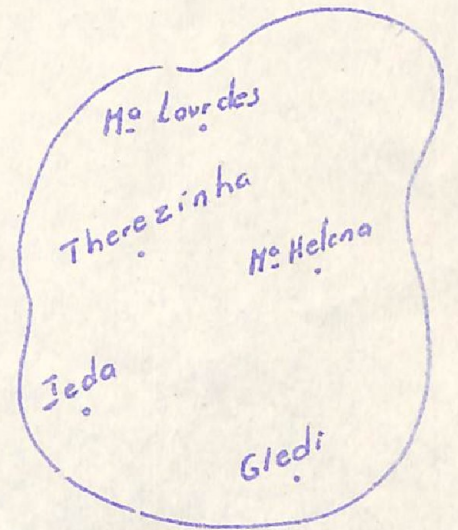 Mª Lourdes
Therezinha
Mª Helena
Ieda
Gledi